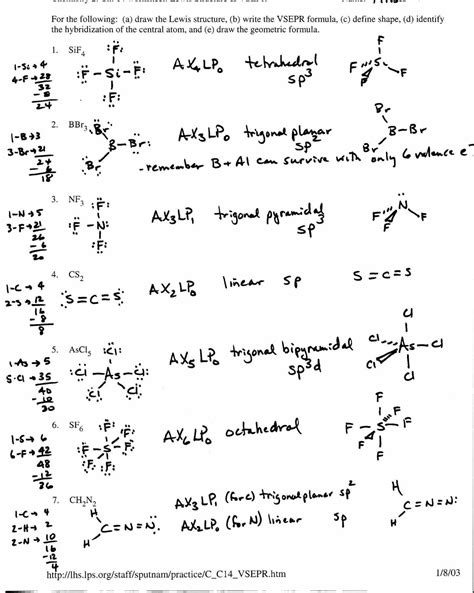 For the following: (a) draw the Lewis structure, (b) write the VSEPR formula, (c) define shape, (d) identify
the hybridization of the central atom, and (e) draw the geometric formula.
1. SiF4
1-Si → 4
4-F → 28
32
-8
24
:F - Si - F:
F
F
AX4LP0 tetrahedral
sp3
F
F Si F
F
2. BBr3
1-B → 3
3-Br → 21
24
-6
18
Br
B-Br:
Br
AX3LP0 trigonal planar
sp2
Br
B-Br
Br
-remember B + Al can survive with only 6 valence e-
3. NF3
1-N → 5
3-F → 21
26
-6
20
:F:
:F - N:
:F:
AX3LP1 trigonal pyramidal
sp3
N
F F F
4. CS2
1-C → 4
2-S → 12
16
-8
8
S=C=S
AX2LP0 linear sp
S=C=S
5. AsCl5
1-As → 5
5-Cl → 35
40
-10
30
:Cl:
:Cl - As - Cl:
Cl Cl
AX5LP0 trigonal bipyramidal
sp3d
Cl
Cl As-Cl
Cl
Cl
6. SF6
1-S → 6
6-F → 42
48
-12
36
:F:
F F
F S F
F
AX6LP0 octahedral
F
F
F-S-F
F
F
7. CH2N2
1-C → 4
2-H → 2
2-N → 10
16
-12
4
H
C=N=N:
H
AX3LP1 (for C) trigonal planar sp2
AX2LP0 (for N) linear sp
H
C=N=N:
H
http://lhs.lps.org/staff/sputnam/practice/C_C14_VSEPR.htm
1/8/03